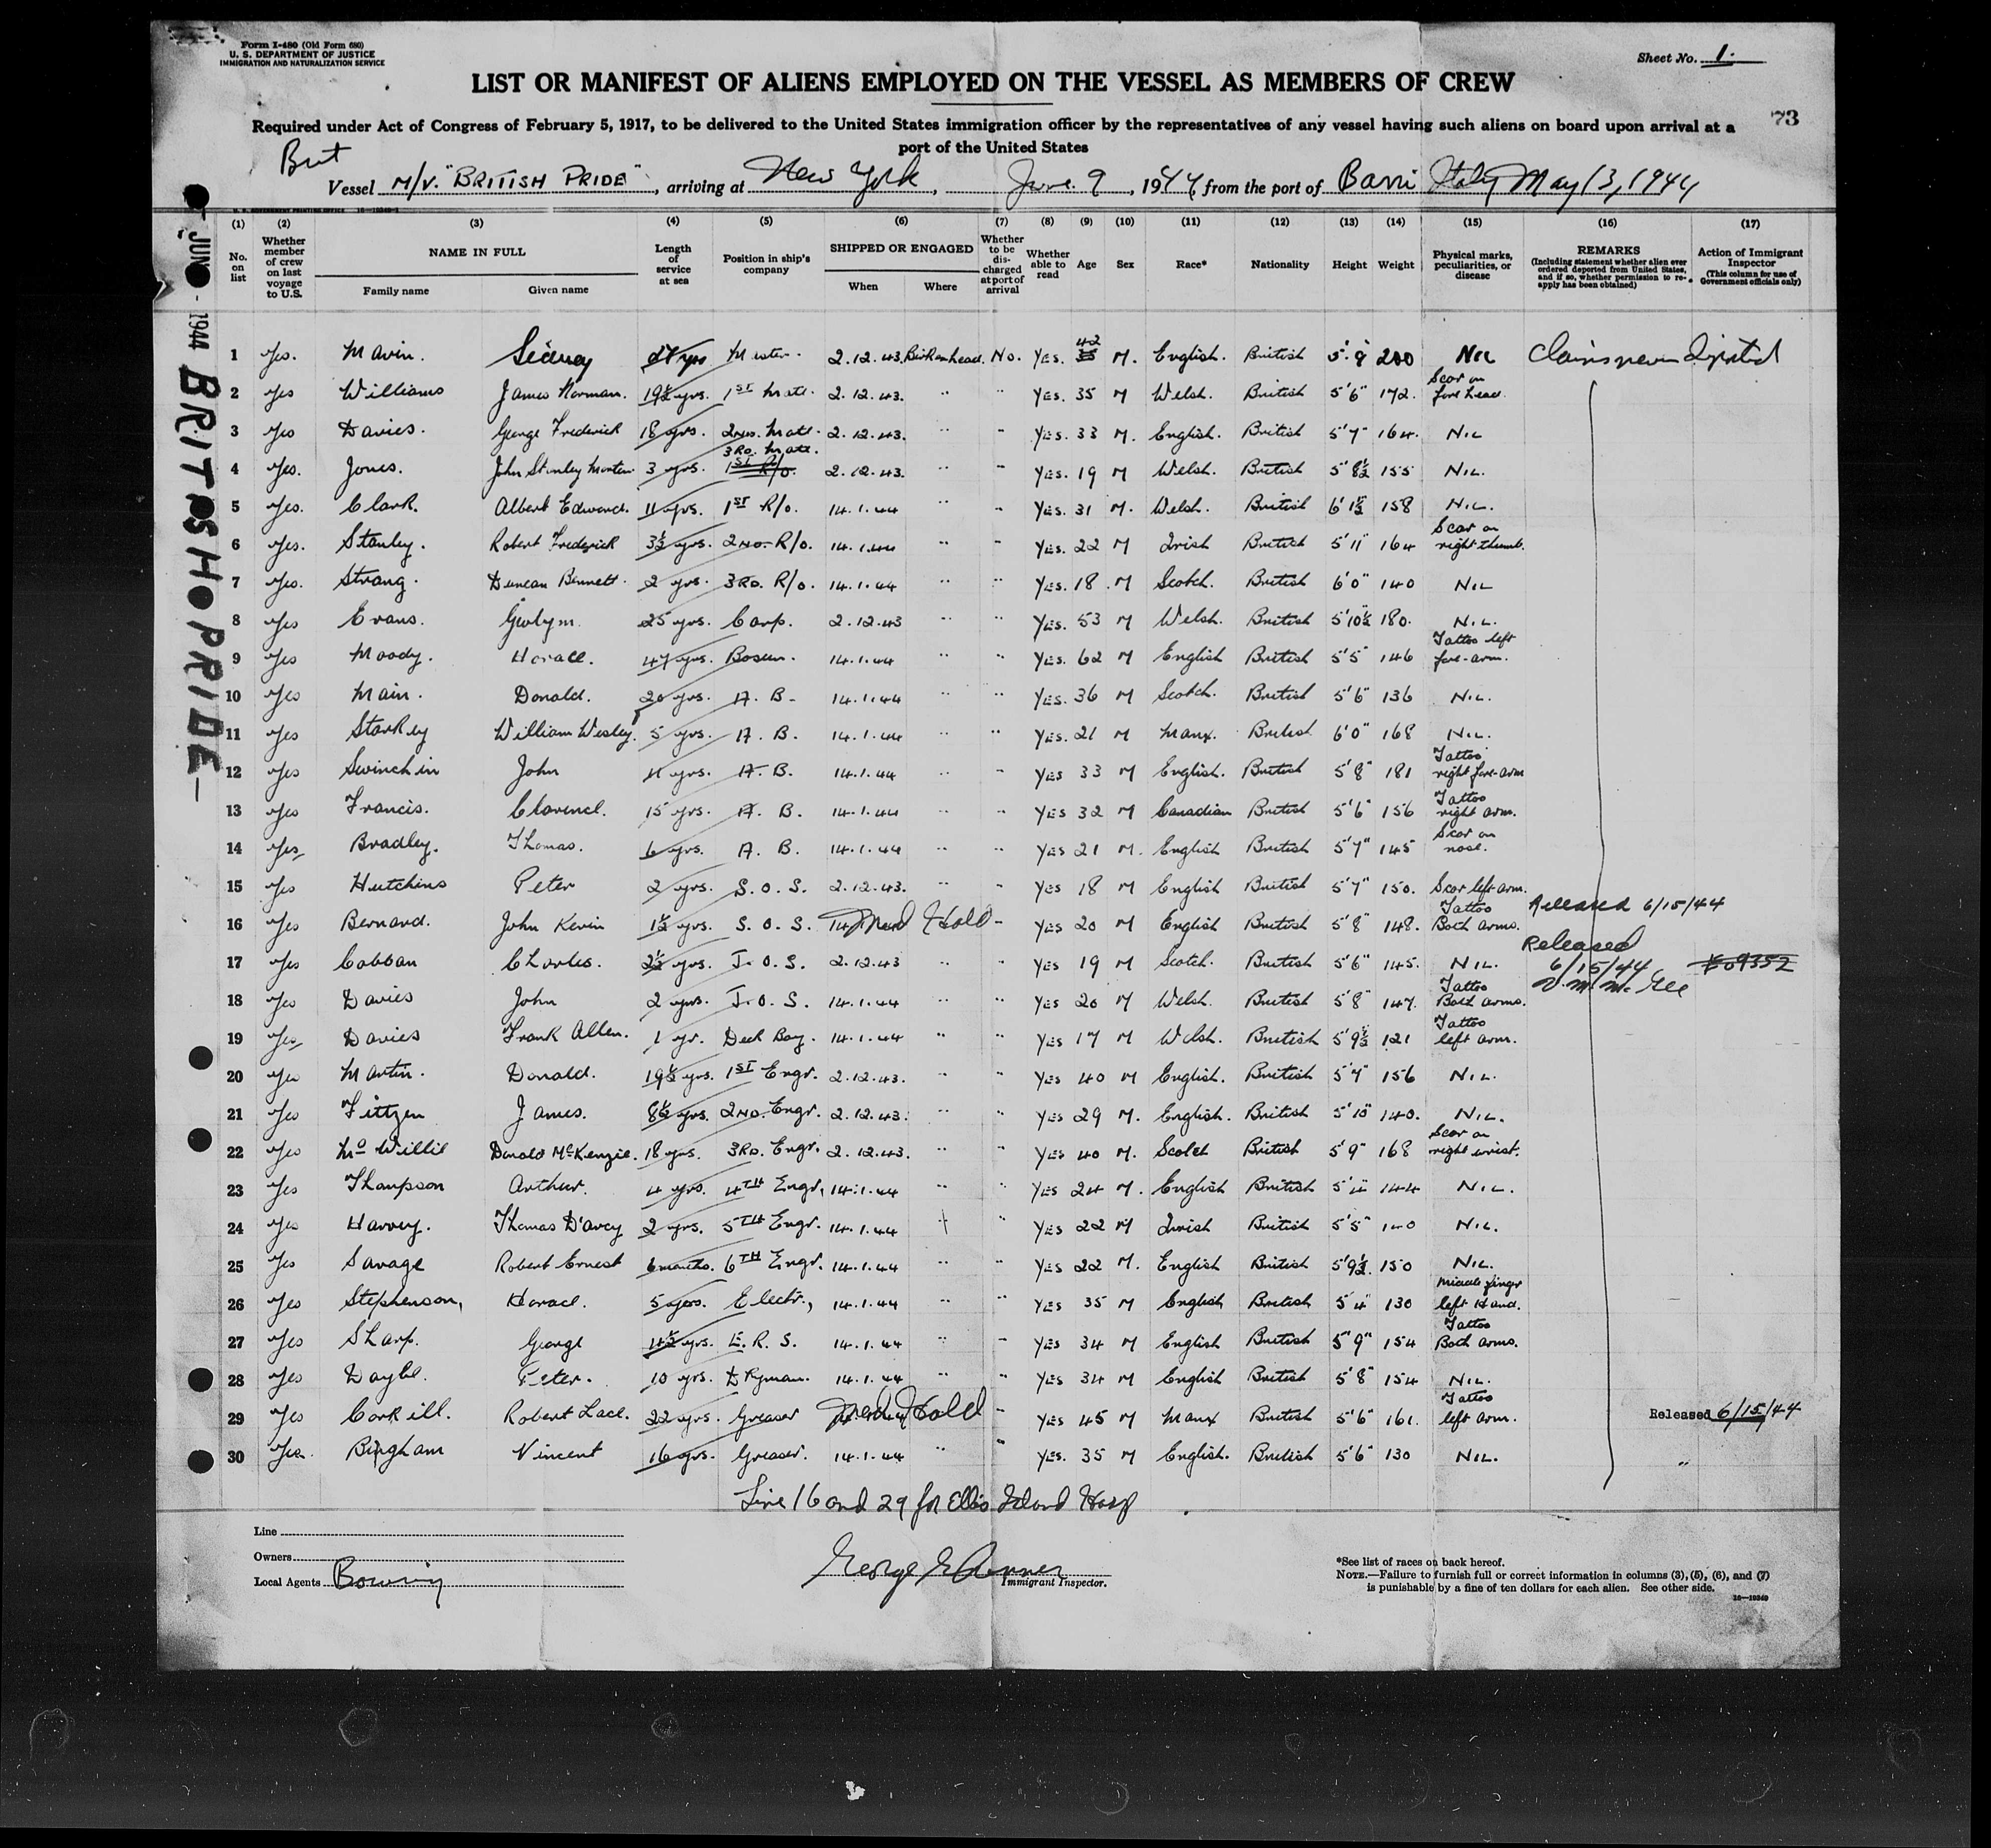 Form I-480 (Old Form 680)
U. S. DEPARTMENT OF JUSTICE
IMMIGRATION AND NATURALIZATION SERVICE
Sheet No. 1.
LIST OR MANIFEST OF ALIENS EMPLOYED ON THE VESSEL AS MEMBERS OF CREW
73
Required under Act of Congress of February 5, 1917, to be delivered to the United States immigration officer by the representatives of any vessel having such aliens on board upon arrival at a
port of the United States
Brit
Vessel M/V. "BRITISH PRIDE", arriving at New York, June 9, 1944 from the port of Barri Italy May 13, 1944
JUN - 1944 BRITISH PRIDE -
(1) (2) (3) (4) (5) (6) (7) (8) (9) (10) (11) (12) (13) (14) (15) (16) (17)
No. on list
Whether member of crew on last voyage to U.S.
NAME IN FULL
Family name
Given name
Length of service at sea
Position in ship's company
SHIPPED OR ENGAGED
When
Where
Whether to be discharged at port of arrival
Whether able to read
Age
Sex
Race*
Nationality
Height
Weight
Physical marks, peculiarities, or disease
REMARKS
(Including statement whether alien ever ordered deported from United States, and if so, whether permission to reapply has been obtained)
Action of Immigrant Inspector
(This column for use of Government officials only)
1 Yes. Mavin. Sidney yrs Master. 2.12.43. Birkenhead. No. Yes. 42 M. English. British 5'.9 200 NIL Claims never
2 Yes Williams James Norman. 19½ yrs. 1ST Mate. 2.12.43. " " Yes. 35 M Welsh. British 5'6" 172. Scar on fore head.
3 Yes Davies. George Frederick 18 yrs. 2ND. Mate. 2.12.43. " " Yes. 33 M. English. British 5'7" 164. NIL
4 Yes. Jones. John Stanley Morton 3 yrs. 3RD. Mate. 1ST R/O. 2.12.43. " " Yes. 19 M Welsh. British 5'8½ 155 NIL.
5 Yes. Clark. Albert Edward. 11 yrs. 1ST R/O. 14.1.44 " " Yes. 31 M. Welsh. British 6'1½ 158 NIL.
6 Yes. Stanley. Robert Frederick 3½ yrs. 2ND. R/O. 14.1.44 " " Yes. 22 M Irish British 5'11" 164 Scar on right thumb.
7 Yes. Strang. Duncan Bennett. 2 yrs. 3RD. R/O. 14.1.44 " " Yes. 18 M Scotch. British 6'0" 140 NIL
8 Yes Evans. Gwlym. 25 yrs. Carp. 2.12.43 " " Yes. 53 M Welsh. British 5'10½ 180. NIL.
9 Yes Moody. Horace. 47 yrs. Bosun. 14.1.44 " " Yes. 62 M English British 5'5" 146 Tattoo left fore-arm.
10 Yes Main. Donald. 20 yrs. A. B. 14.1.44 " " Yes. 36 M Scotch. British 5'6" 136 NIL.
11 Yes Starkey William Wesley. 5 yrs. A. B. 14.1.44 " " Yes. 21 M Manx. British 6'0" 168 NIL.
12 Yes Swinchin John 11 yrs. A. B. 14.1.44 " " Yes 33 M English. British 5'8" 181 Tattoo right fore-arm
13 Yes Francis. Clarence. 15 yrs. A. B. 14.1.44 " " Yes 32 M Canadian British 5'6" 156 Tattoo right arm.
14 Yes Bradley. Thomas. 6 yrs. A. B. 14.1.44 " " Yes 21 M. English British 5'7" 145 Scar on nose.
15 Yes Hutchins Peter 2 yrs. S. O. S. 2.12.43. " " Yes 18 M English British 5'7" 150. Scar left arm.
16 Yes Bernard. John Kevin 1½ yrs. S. O. S. Med Hold - Yes 20 M English British 5'8" 148. Tattoo Both arms. Released 6/15/44
17 Yes Cobban Charles. 2½ yrs. J. O. S. 2.12.43 " " Yes 19 M Scotch. British 5'6" 145. NIL. Released 6/15/44
18 Yes Davies John 2 yrs. J. O. S. 14.1.44 " " Yes 20 M Welsh. British 5'8" 147. Tattoo Both arms.
19 Yes Davies Frank Allen. 1 yr. Deck Boy. 14.1.44 " " Yes 17 M Welsh. British 5'9½ 121 Tattoo left arm.
20 Yes Martin. Donald. 19½ yrs. 1ST Engr. 2.12.43. " " Yes 40 M English. British 5'7" 156 NIL.
21 Yes James. 8½ yrs. 2ND. Engr. 2.12.43. " " Yes 29 M. English. British 5'10" 140. NIL.
22 Yes Mc Willie Donald McKenzie. 18 yrs. 3RD. Engr. 2.12.43. " " Yes 40 M. Scotch British 5'9" 168 Scar on right wrist.
23 Yes Thompson Arthur. 4 yrs. 4TH Engr. 14.1.44 " " Yes 24 M. English British 144 NIL.
24 Yes Harvey. Thomas D'arcy 2 yrs. 5TH Engr. 14.1.44 " Yes 22 M Irish British 5'5" 140 NIL.
25 Yes Savage Robert Ernest 6 months. 6TH Engr. 14.1.44 " " Yes 22 M. English British 5'9½. 150 NIL.
26 Yes Stephenson, Horace. 5 yrs. Electr., 14.1.44 " " Yes 35 M English British 5'4" 130 Middle finger left Hand.
27 Yes Sharp. George yrs. E. R. S. 14.1.44 " " Yes 34 M English British 5'9" 154 Tattoo Both arms.
28 Yes Peter. 10 yrs. Dkyman. 14.1.44 " " Yes 34 M English British 5'8" 154 NIL.
29 Yes Corkill. Robert Lace. 22 yrs. Greaser Med Hold " Yes 45 M Manx British 5'6" 161. Tattoo left arm. Released 6/15/44
30 Yes. Bingham Vincent 16 yrs. Greaser. 14.1.44 " " Yes. 35 M English. British 5'6" 130 NIL. "
Line 16 and 29 for Ellis Island Hosp
Line
Owners
Local Agents Bowring
Immigrant Inspector.
*See list of races on back hereof.
NOTE.—Failure to furnish full or correct information in columns (3), (5), (6), and (7)
is punishable by a fine of ten dollars for each alien. See other side.
16—19349